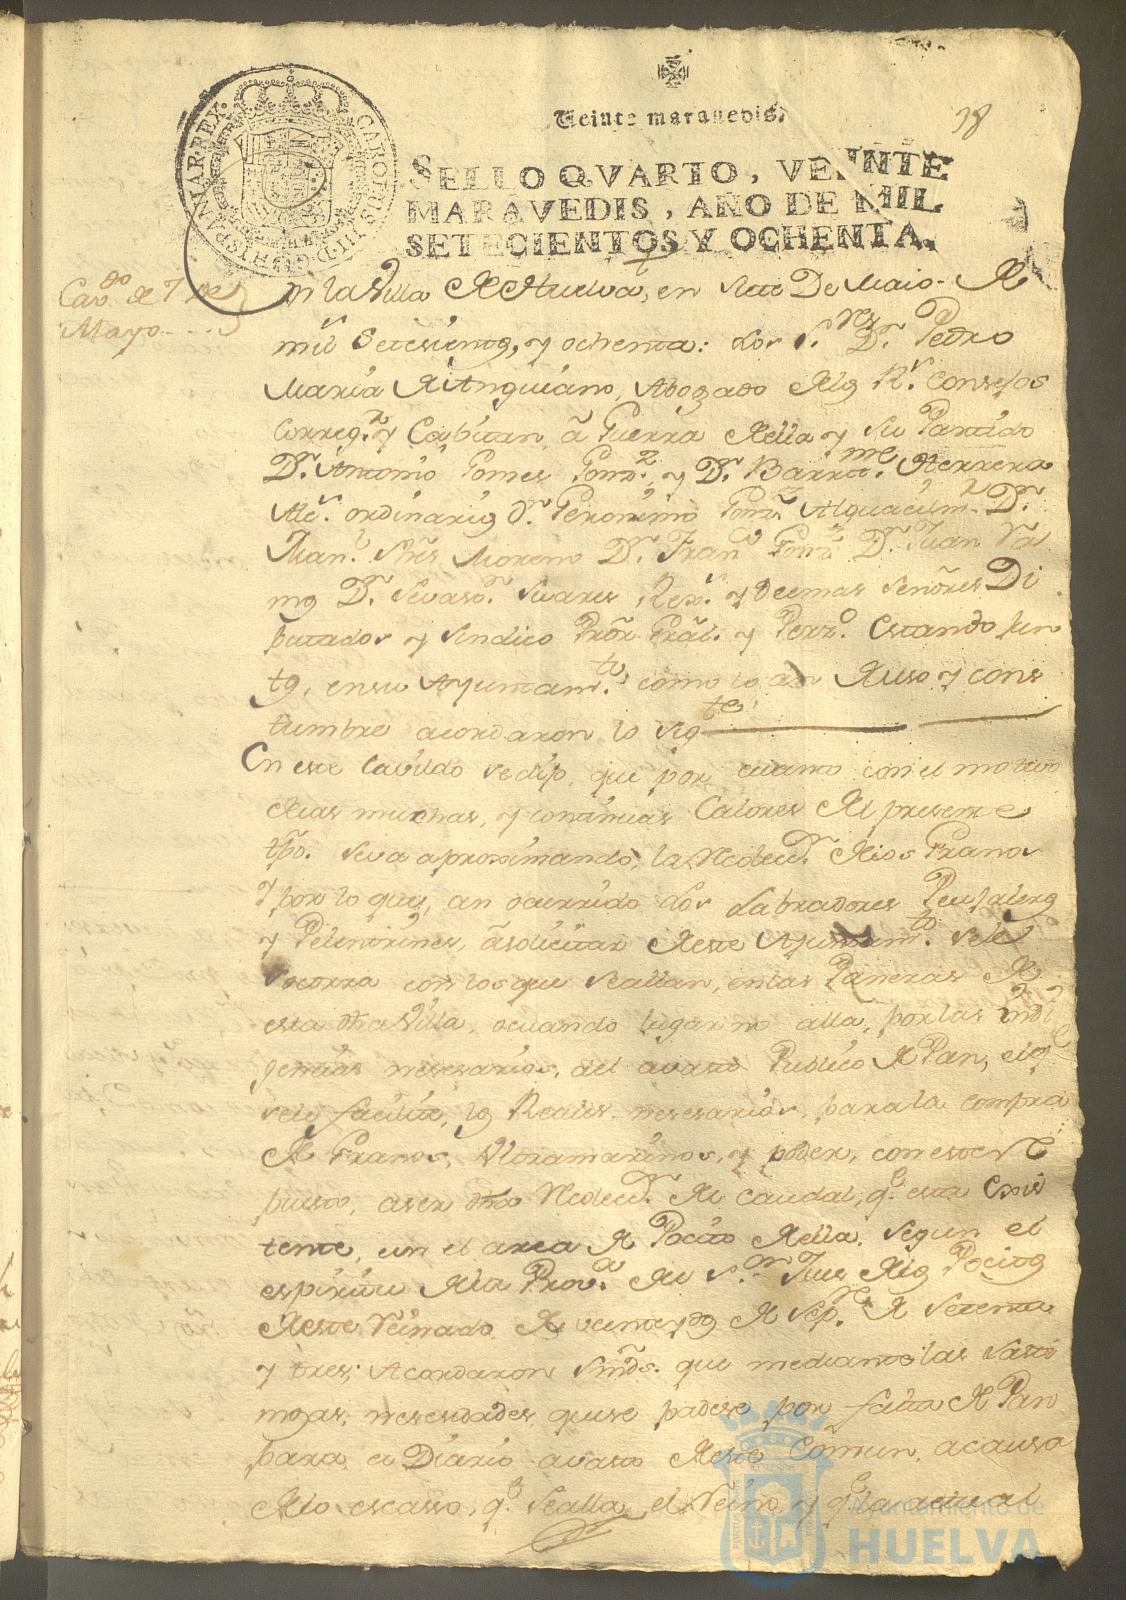 38
Veinte maravedis.
SELLO QVARTO, VEINTE
MARAVEDIS, AÑO DE MIL
SETECIENTOS Y OCHENTA.
CAROLUS III D G HISPANIAR REX
Cavdo de 7 de
Mayo
En la Villa de Huelva, en siete De Maio de
mil Setesientos, y ochenta: los Sres Dn Pedro
Maria de Anguiano, Abogado de los Rs Consejos
Corregr y Capitan à Guerra de ella y su Partido
Dn Antonio Gomes Gonz y Dn Barttme Herrera
Alcs ordinarios Dn Geronimo Gonz Alguacil mr Dn
Manl Moreno Dn Franco Gonz Dn Juan
Dn Sevasn Suares Rexs y demas Señores Di
putados y Sindico Pror Gral y Perzo Estando jun
tos, en su Ayuntamto como lo an de uso y cons
tumbre acordaron lo sigte
En este Cavildo se dijo, que por cuanto con el motivo
de las muchas, y continuas Calores del presente
tpo. se va aproximando, la de los Granos
y por lo que, an ocurrido los Labradores Peujaleros
y Pelentrines, à solicitar de este Ayuntamto se le
socorra con los que se allan, en las Paneras de
esta dha Villa, o cuando lugar no alla, por las indi
gencias nesesarios, del avasto Publico de Pan, el q
se les facilite, los Reales, nesesarios, para la compra
de Granos, Ultramarinos, y poder, con este re
puesto, aser dha del caudal, qe esta Exis
tente, en el arca de Pocito de ella, segun el
espiritu de la Prova del Sor Jues de los Pocitos
de este Reinado de veinte y dos de Sepre de Setenta
y tres; Acordaron Smds. que mediante las lasti
mosas, nesesidades, que se padese por falta de Pan
para el Diario avasto de este Comun, a causa
de lo escasso, qe se alla el Reino, y qe la actual
Ayuntamiento de
HUELVA